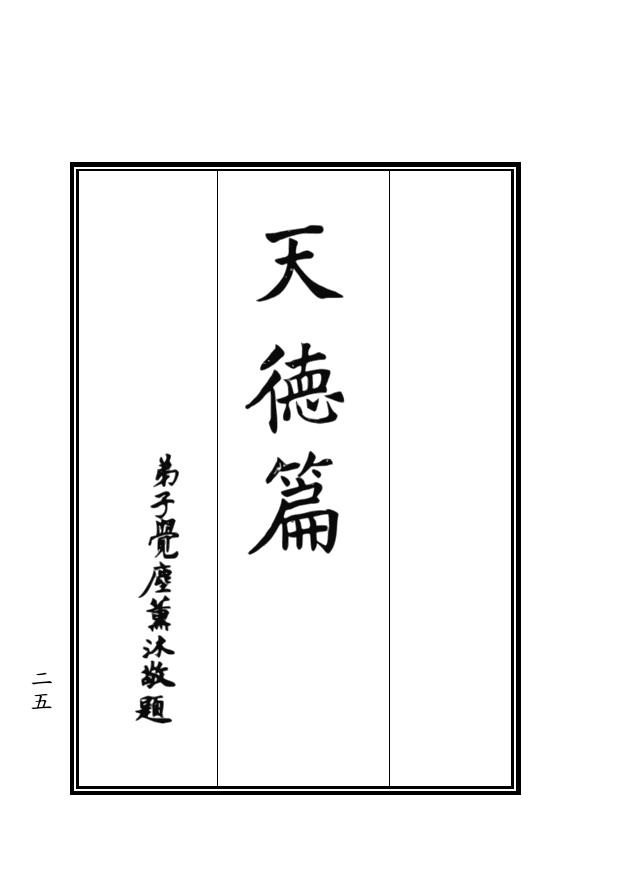 天德篇
弟子覺塵薰沐敬題
二五